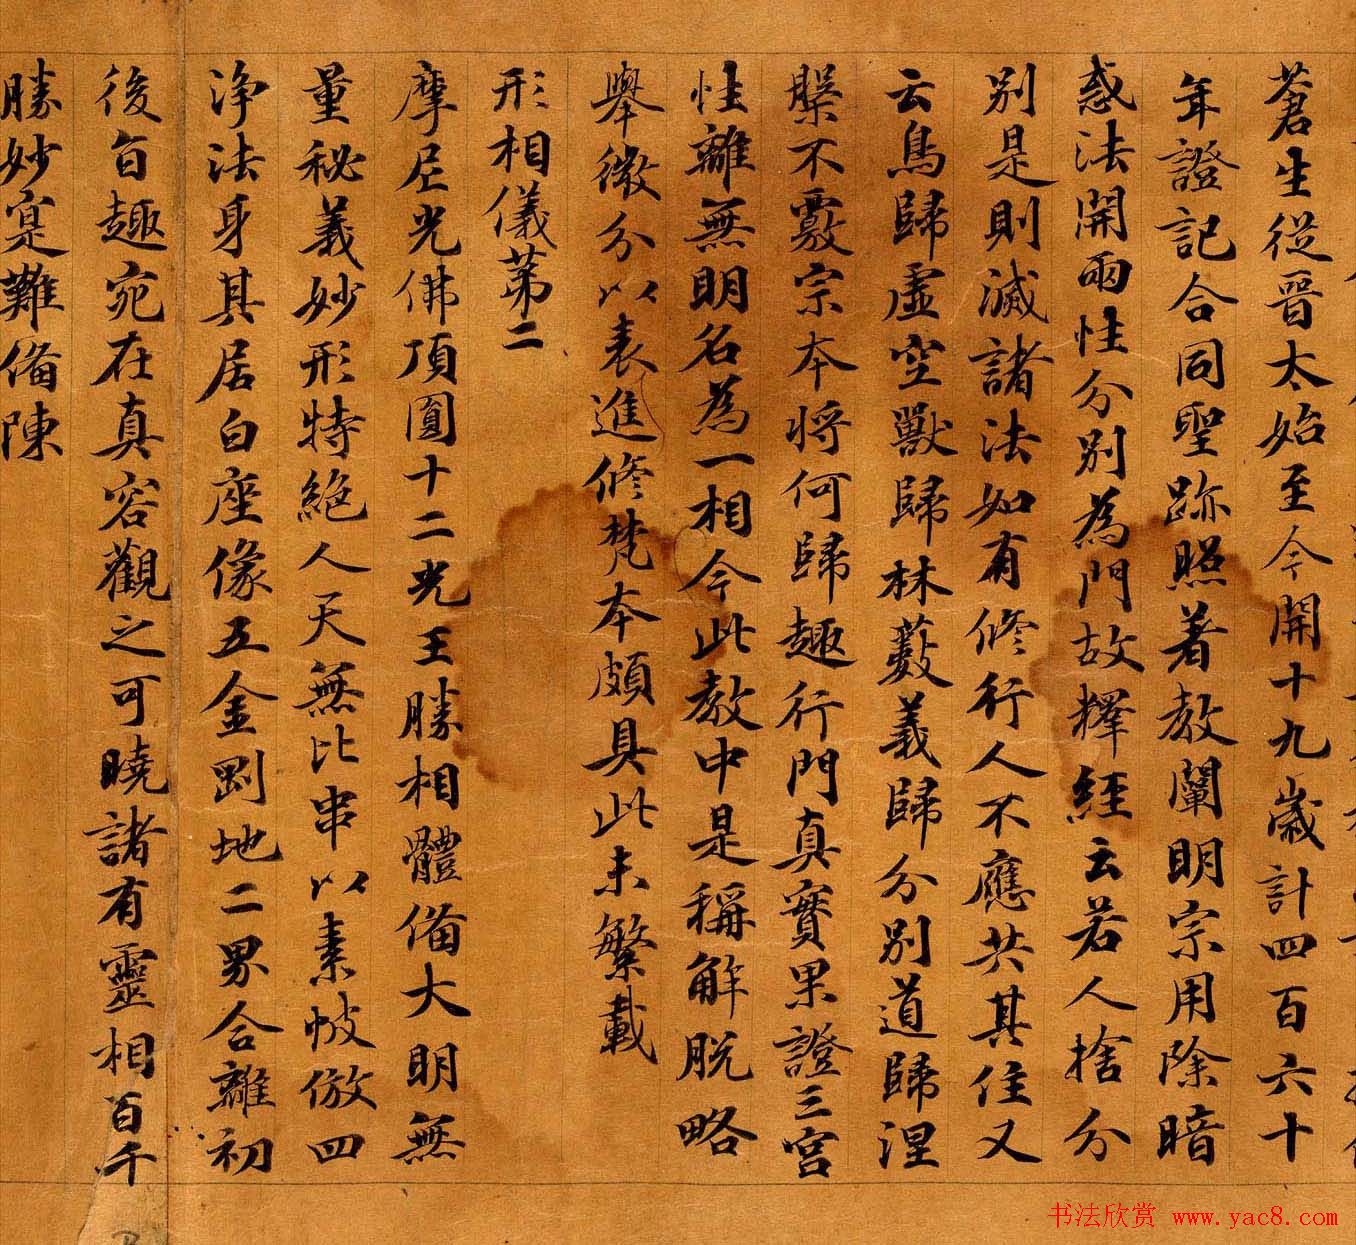 蒼生從晉太始至今開十九歲計四百六十
年證記合同聖跡照著教闡明宗用除暗
惑法開兩性分別為門故釋經云若人捨分
別是則滅諸法如有修行人不應共其住又
云鳥歸虛空獸歸林藪義歸分別道歸涅
槃不覈宗本將何歸趣行門真實果證三宮
性離無明名為一相今此教中是稱解脫略
舉微分以表進修梵本頗具此未繁載
形相儀第二
摩尼光佛頂圓十二光王勝相體俻大明無
量秘義妙形特絕人天無比串以素帔倣四
淨法身其居白座像五金剛地二界合離初
後旨趣宛在真容觀之可曉諸有靈相百千
勝妙寔難俻陳
书法欣赏 www.yac8.com